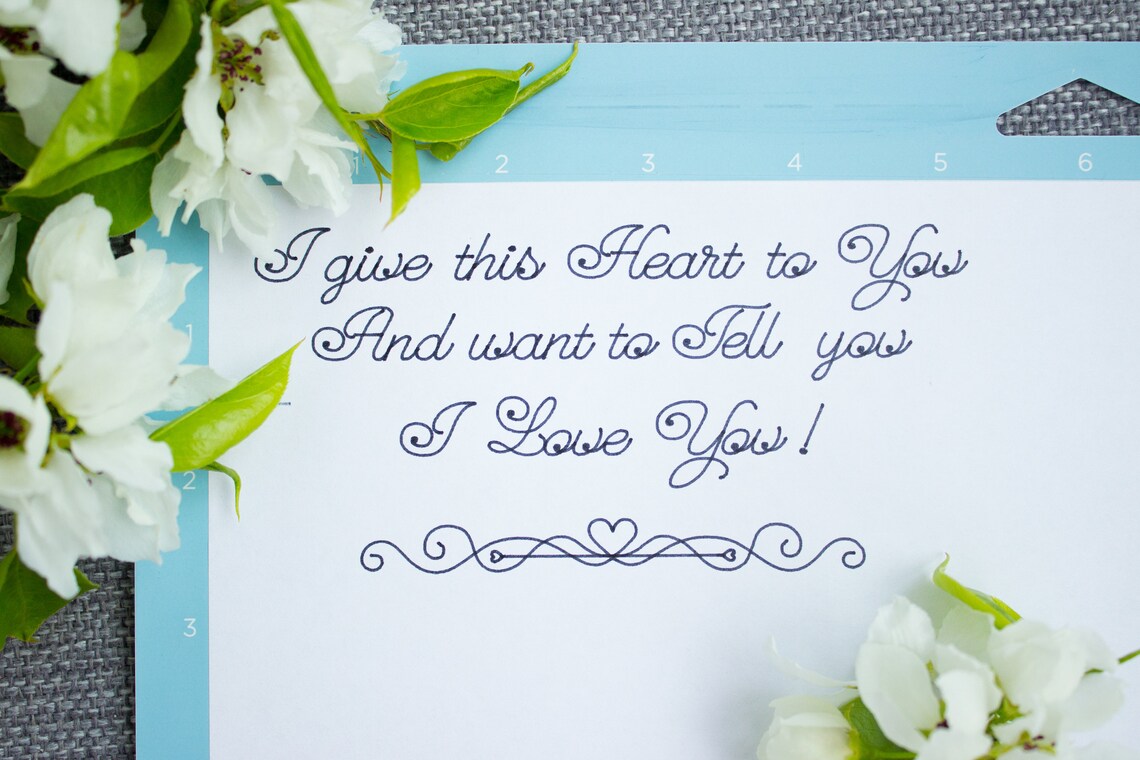 1 2 3 4 5 6
I give this Heart to You
1
And want to Tell you
I Love You!
2
3